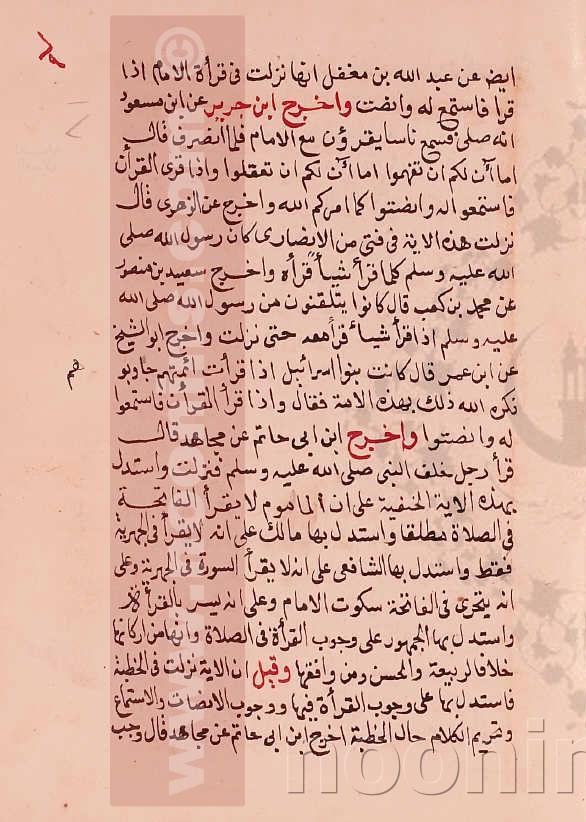 ايض عن عبد الله بن مغفل انها نزلت في قرأة الامام اذا
قرا فاستمع له وانصت واخرج ابن جرير عن ابن مسعود
انه صلى فسمع ناسا يقرؤن مع الامام فلما انصرف قال
اما آن لكم ان تفهموا اما آن لكم ان تعقلوا واذا قرى القرآن
فاستمعوا له وانصتوا كما امركم الله واخرج عن الزهرى قال
نزلت هذه الاية في فتى من الانصارى كان رسول الله صلى
الله عليه وسلم كلما قرأ شيأ قرأه واخرج سعيد بن منصور
عن محمد بن كعب قال كانوا يتلقنون من رسول الله صلى الله
عليه وسلم اذا قرأ شيأ قرأ معه حتى نزلت واخرج ابو الشيخ
عن ابن عمر قال كانت بنوا اسرائيل اذا قرأت ائمتهم جاوبو
هم
نكره الله ذلك بهذه الامة فقال واذا قرأ القرآن فاستمعوا
له وانصتوا واخرج ابن ابى حاتم عن مجاهد قال
قرأ رجل خلف النبى صلى الله عليه وسلم فنزلت واستدل
بهذه الاية الحنفية على ان الماموم لا يقرأ الفاتحة
في الصلاة مطلقا واستدل بها مالك على انه لا يقرأ في الجهرية
فقط واستدل بها الشافعى على انه لا يقرأ السورة في الجهرية وعلى
انه يتحرى في الفاتحة سكوت الامام وعلى انه يسر بالقرأة
واستدل بها الجمهور على وجوب القرأة في الصلاة وانها من اركانها
خلافا لربيعة والحسن ومن وافقها وقيل ان الاية نزلت في الخطبة
فاستدل بها على وجوب القرأة فيها ووجوب الانصات والاستماع
وتحريم الكلام حال الخطبة اخرج ابن ابى حاتم عن مجاهد قال وجب
noonin